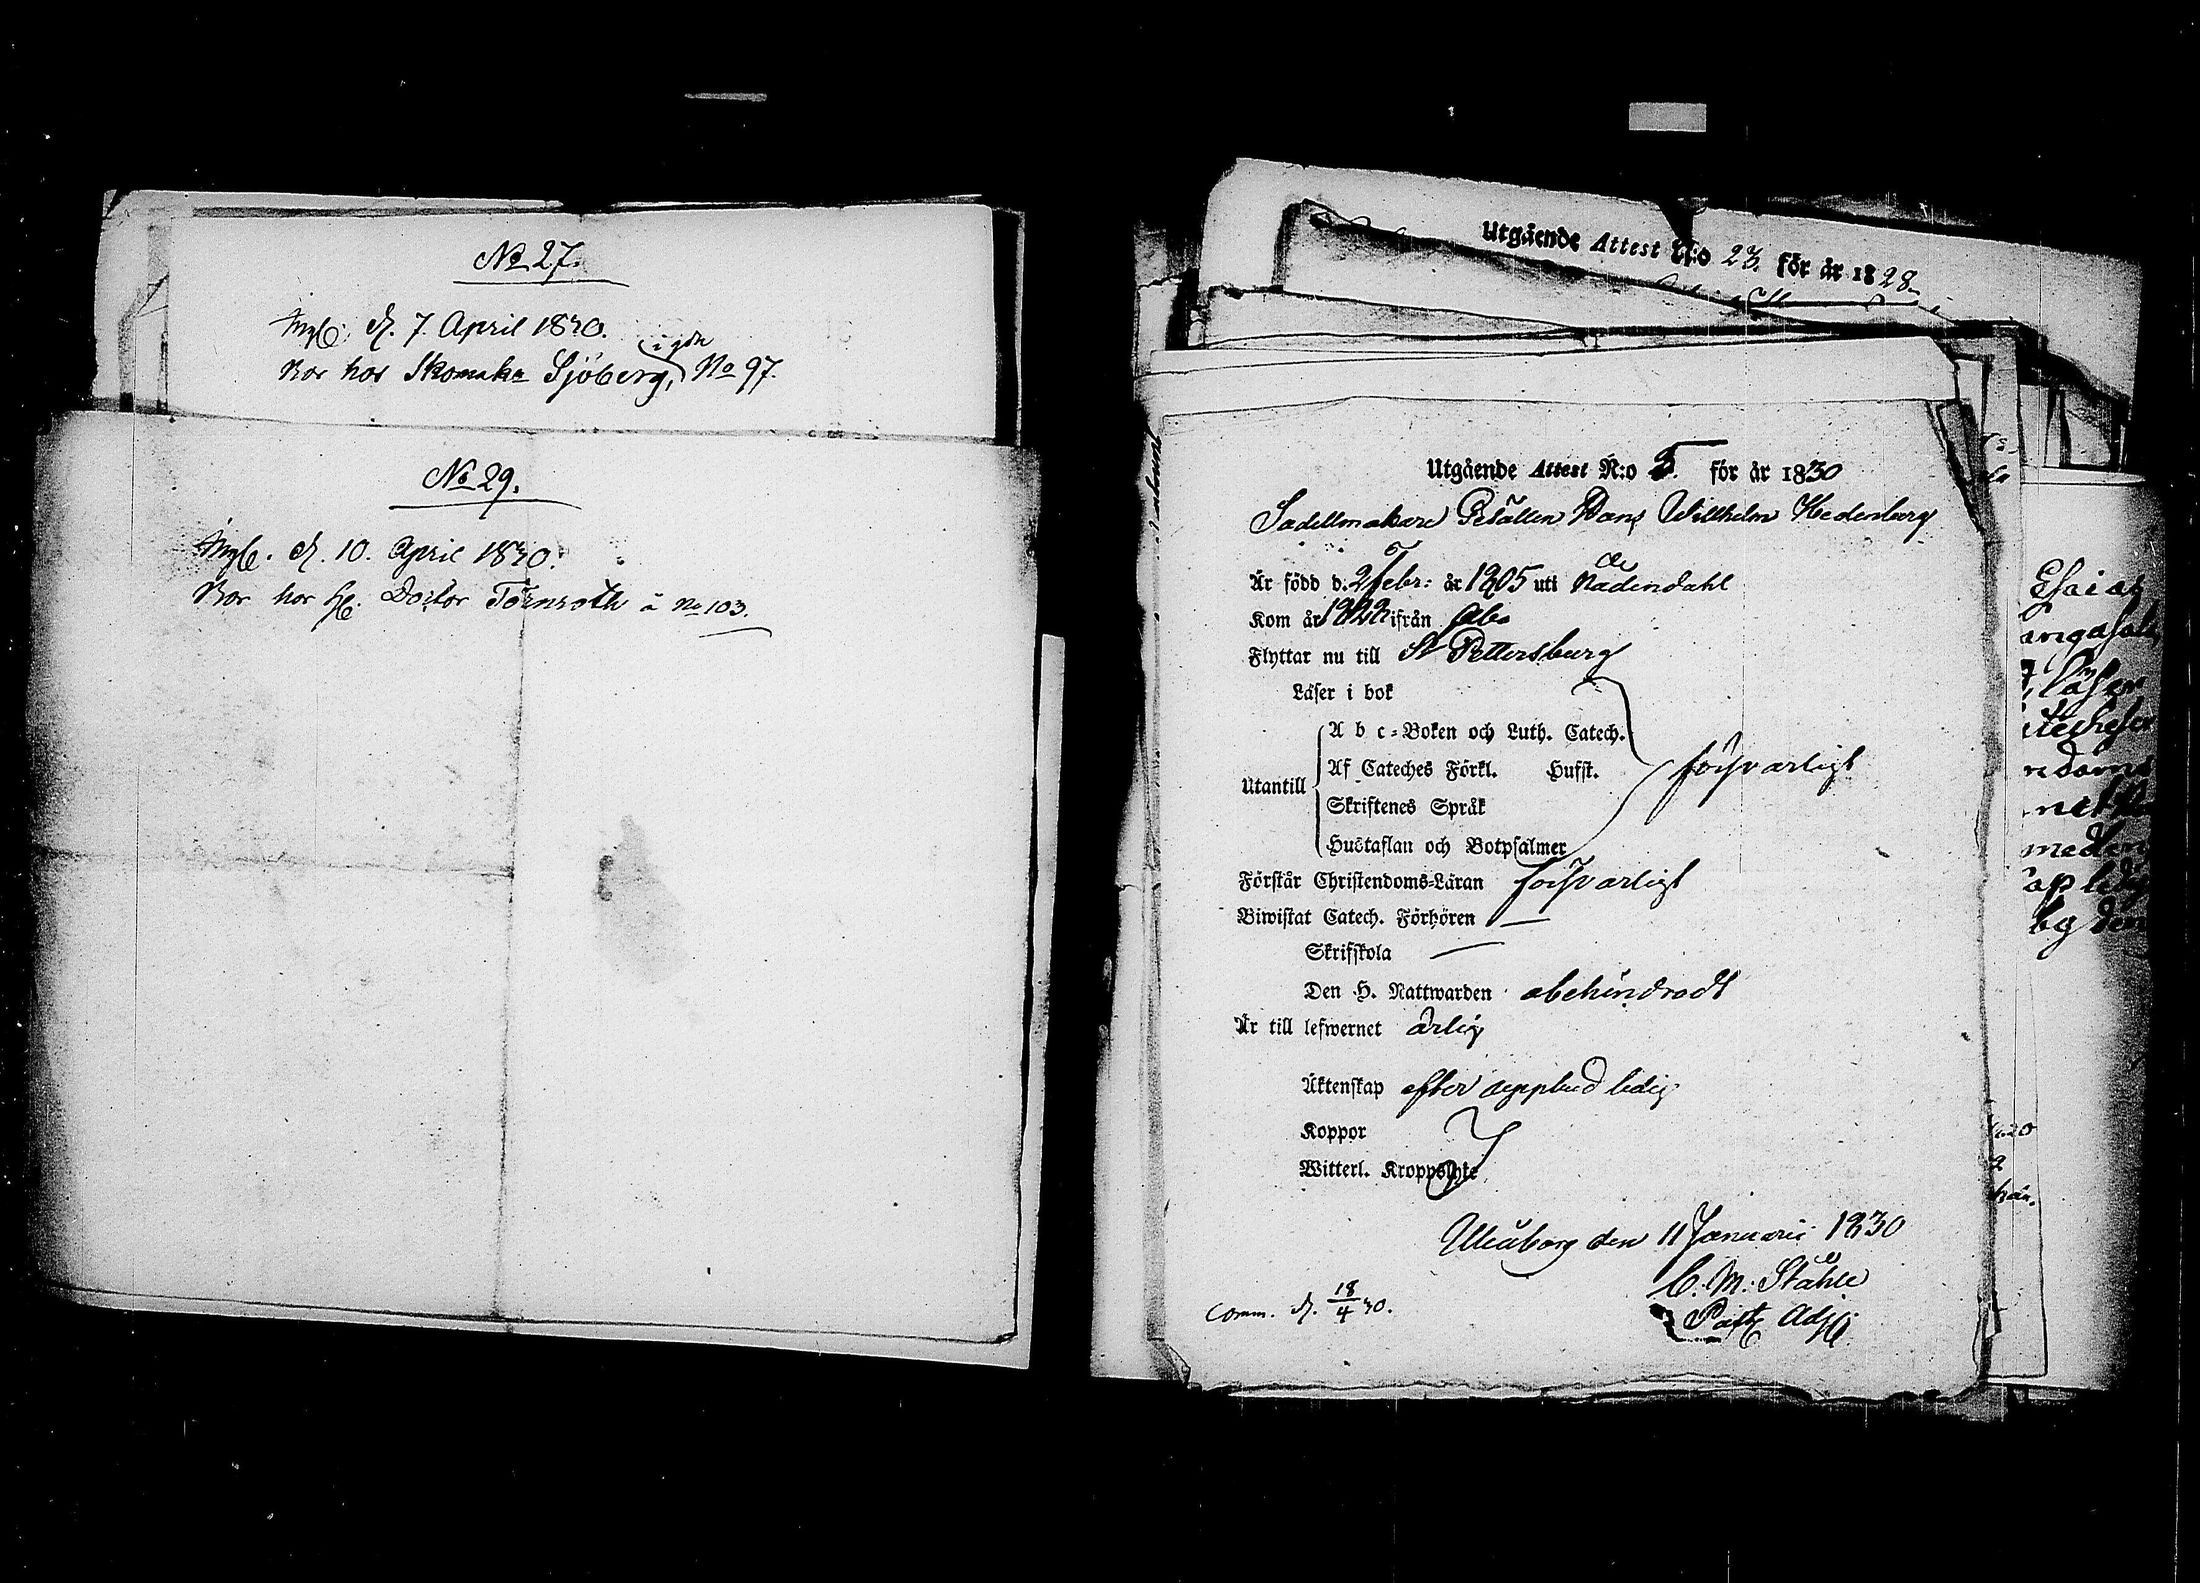 No 27.
Ingl. d. 7 April 1830.
Bor hos Skomaka Sjöberg, i gdn No 97.
No 29.
Ingl. d. 10. April 1830.
Bor hos H. Doctor Törnroth å No 103.
Utgående Attest N:o 23. för år 1828
Utgående Attest N:o 5. för år 1830
Sadellmakare Gesällen Hans Willhelm Hedenberg
Är född d. 2 Febr: år 1805 uti Nådendahl
Kom år 1822 ifrån Åbo
Flyttar nu till St Pettersburg
Läser i bok
Utantill
A b c-Boken och Luth. Catech.
Af Cateches Förkl. Hufst.
Skriftenes Språk
Hustaflan och Botpsalmer
försvarligt
Förstår Christendoms-Läran försvarligt
Biwistat Catech. Förhören —
Skrifskola —
Den H. Nattwarden obehindradt
Är till lefwernet ärlig
Äktenskap efter uppbud ledig
Koppor
Witterl. Kroppslyte
Uleåborg den 11 Januarii 1830
C. M. Ståhle
Past. Adj.
Comm. d. 18/4 30.
Esaias
läser